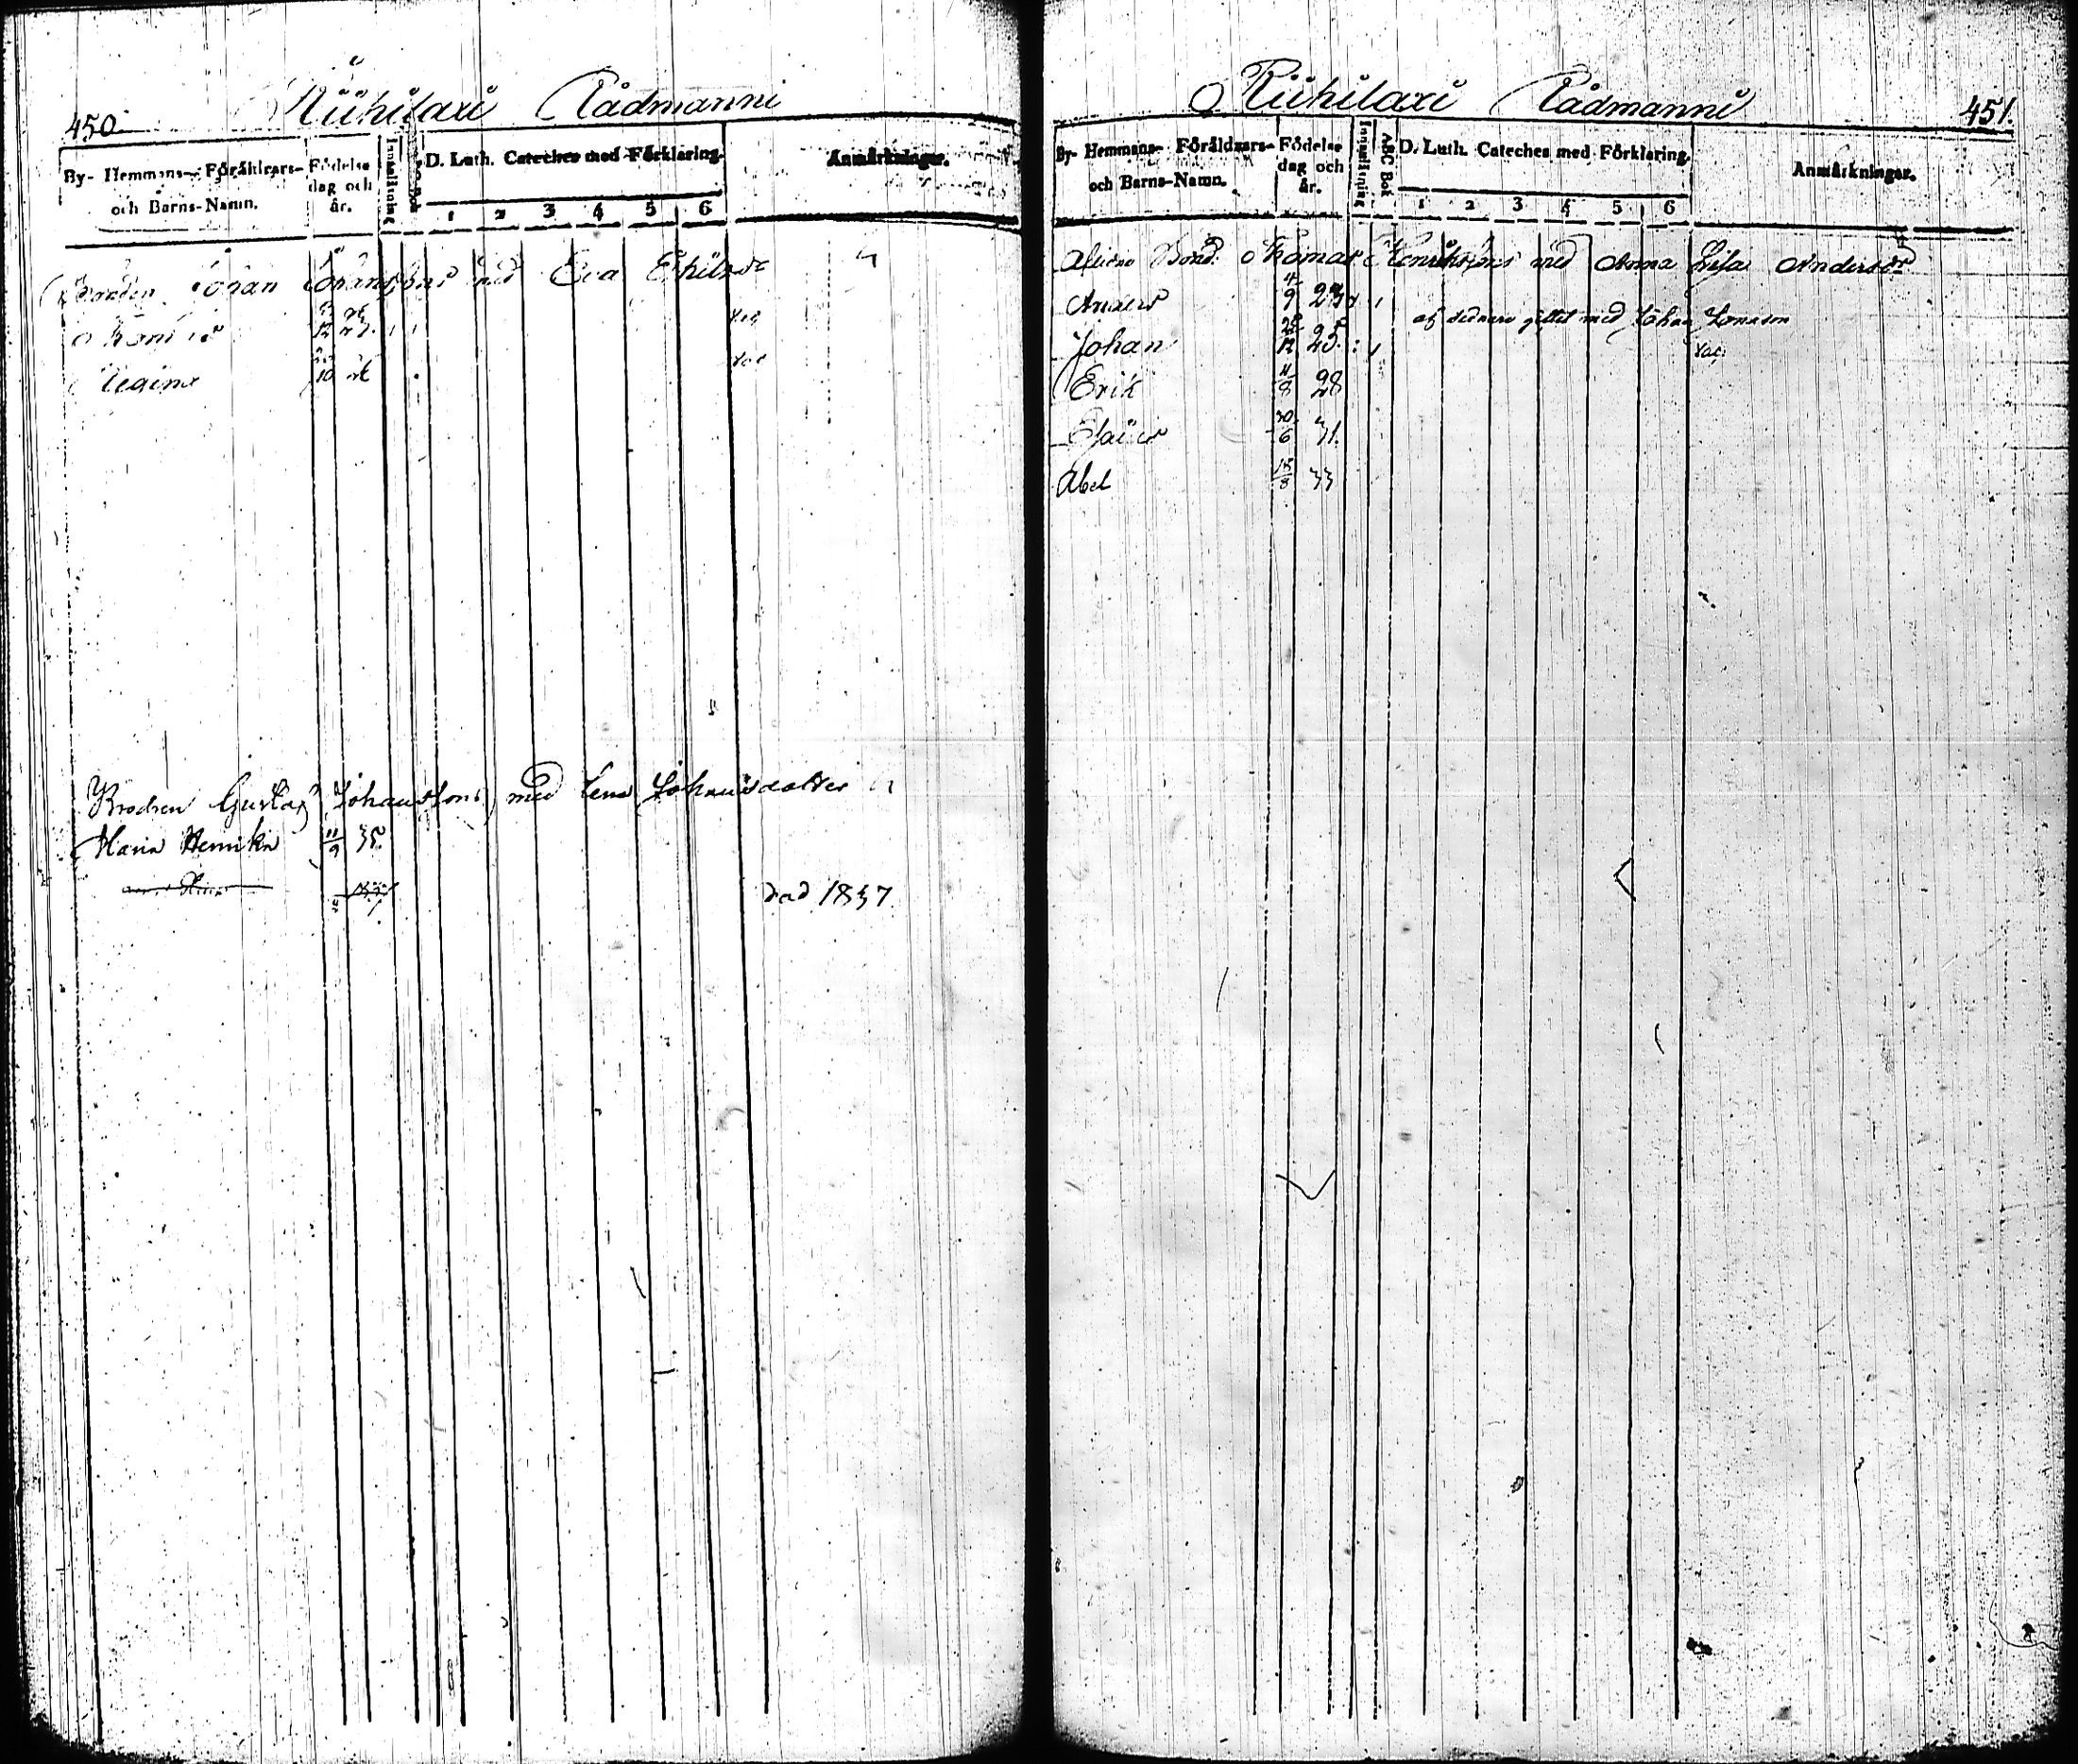 450. Riihilaxi Rådmanni
By- Hemmans- Föräldrars- och Barns-Namn.
Födelse dag och år.
Innanläsning
ABC Bok
D. Luth. Cateches med Förklaring.
1 2 3 4 5 6
Anmärkningar.
Bonden Johan Johansons med Eva Eskilsdr
Thomas
Regina 10
Brodren Gustaf Johanssons med Lena Johansdotter
Maria Henrika 11/9 35.
död 1837
Riihilaxi Rådmanni 451.
By- Hemmans- Föräldrars- och Barns-Namn.
Födelse dag och år.
Innanläsning
ABC Bok
D. Luth. Cateches med Förklaring.
1 2 3 4 5 6
Anmärkningar.
Bond. Thomas Henrikssons med Anna Lisa Andersdr
Anders 4/9
af sednare giftet med Johan
Johan 12 25. vac:
Erik 11/8 28
30/6 31.
Abel 18/8 33